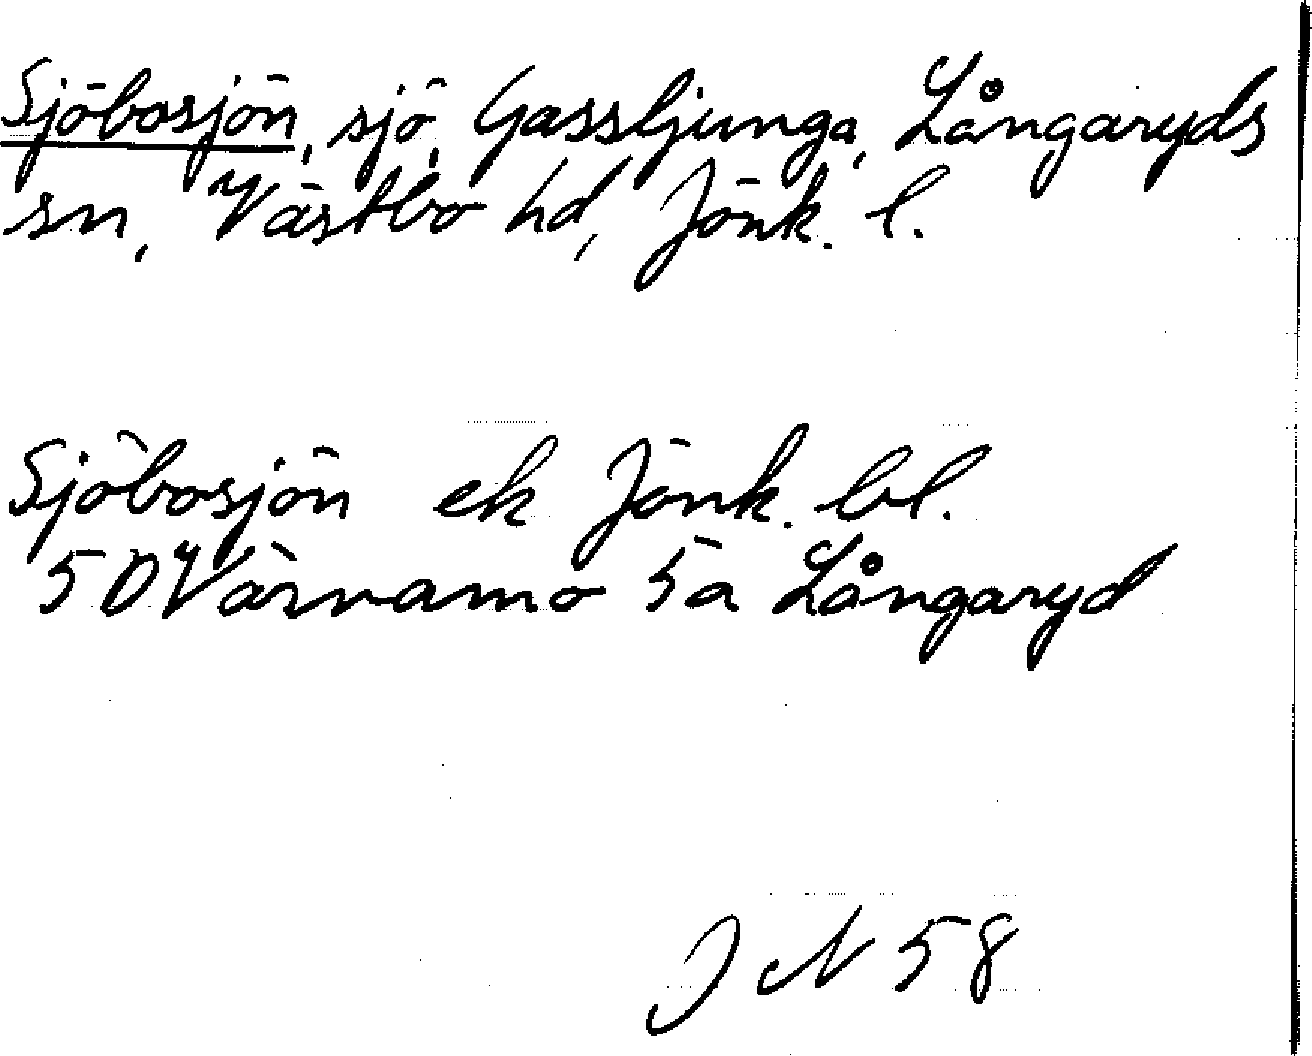 Sjöbosjön, sjö, Gassljunga, Långaryds
sn, Västbo hd, Jönk. l.
Sjöbosjön ek Jönk. bl.
5D Värnamo 5a Långaryd
JN 58